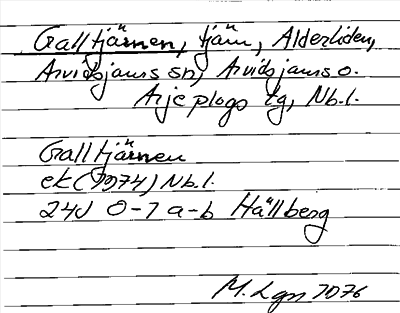 Galltjärnen, tjärn, Alderliden,
Arvidsjaurs sn, Arvidsjaurs o.
Arjeplogs tg, Nb.l.
Galltjärnen
ek (1974) Nb.l.
24J 0-1 a-b Hällberg
M. Lgn 1076